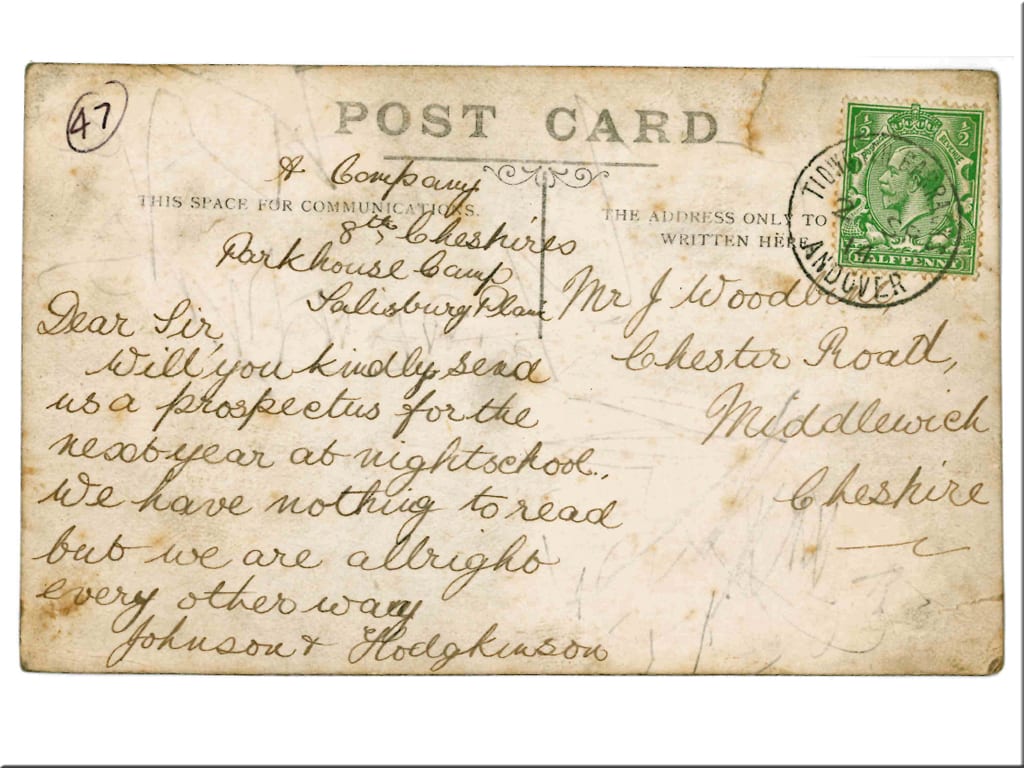 47
POST CARD
A Company
THIS SPACE FOR COMMUNICATIONS.
8th Cheshires
Parkhouse Camp
Salisbury Plain
Dear Sir,
Will you kindly send
us a prospectus for the
next year at nightschool.,
We have nothing to read
but we are allright
every other way
Johnson & Hodgkinson
THE ADDRESS ONLY TO
WRITTEN HERE
Mr J
Chester Road,
Middlewich
Cheshire
½ ½
HALFPENNY
ANDOVER